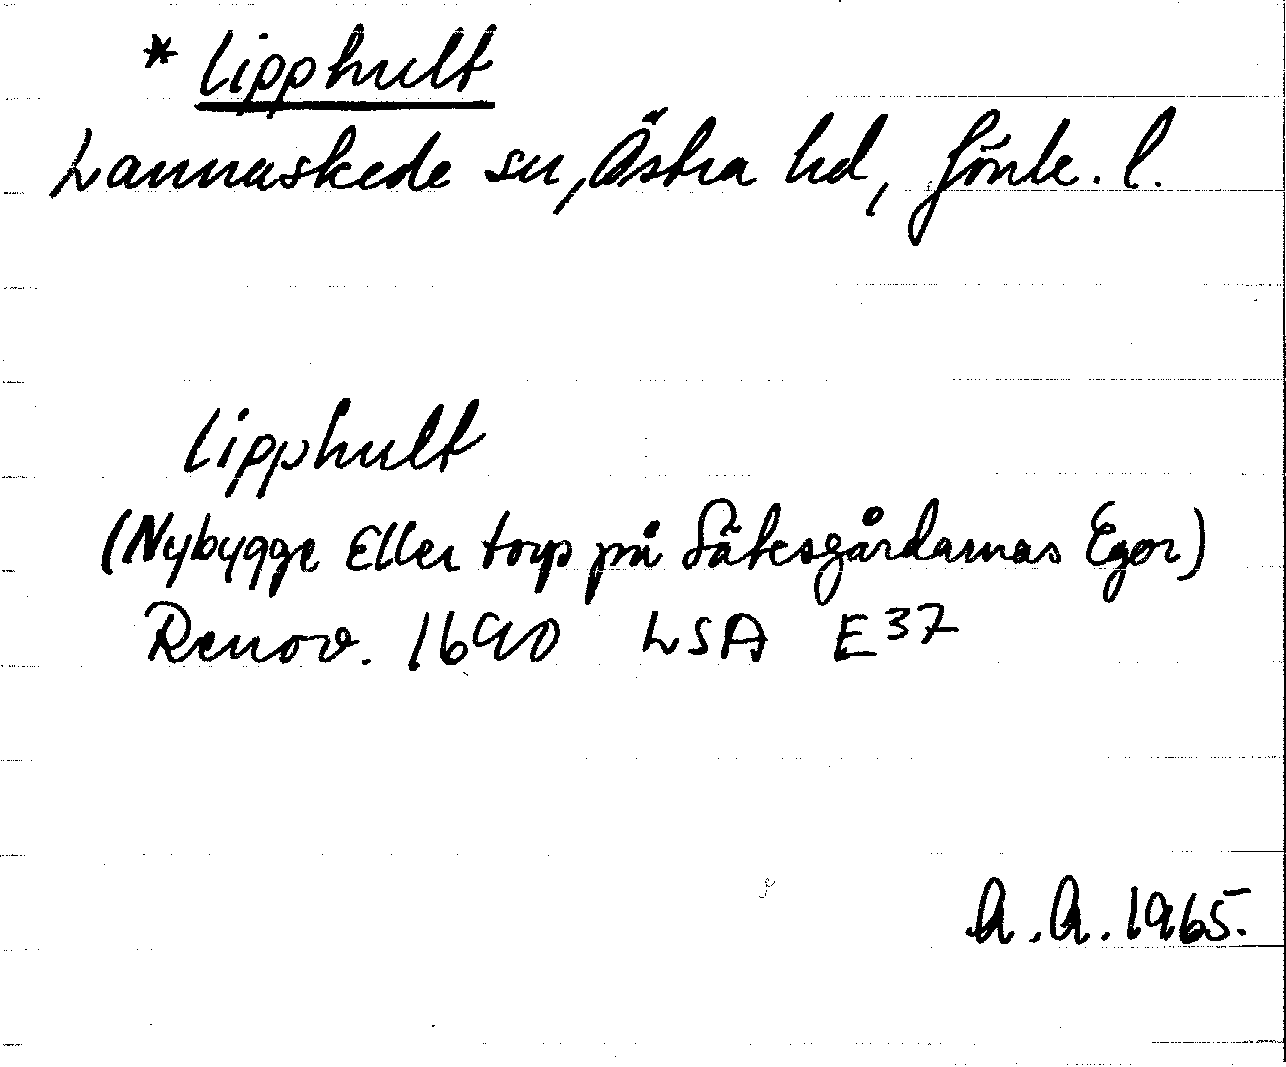 * Lipphult
Lannaskede sn, Östra hd, Jönk. l.
Lipphult
(Nybygge Eller torp på Sätesgårdarnas Egor)
Renov. 1690 LSA E37
A.A. 1965.